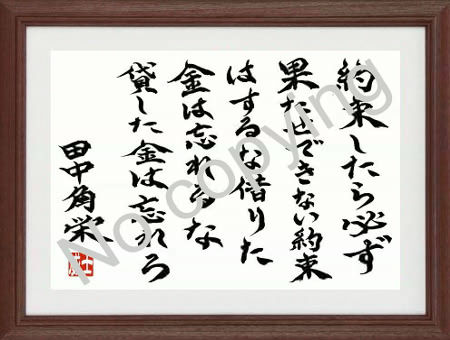 約束したら必ず
果たせできない約束
はするな借りた
金は忘れるな
貸した金は忘れろ
田中角栄
No copying